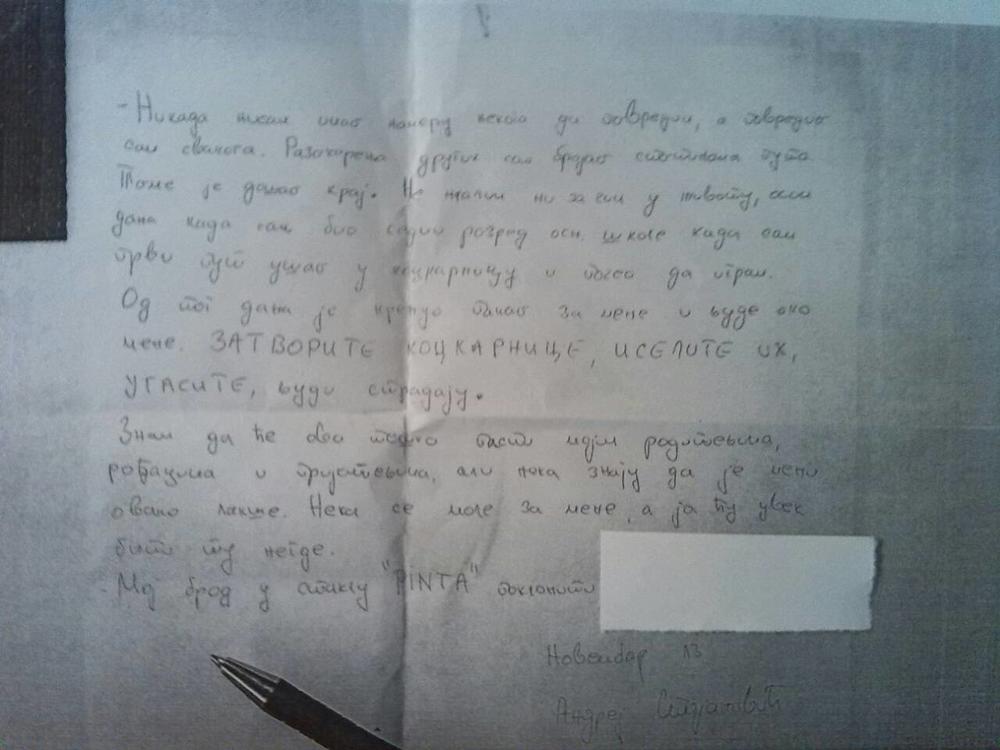 - Никада нисам имао намеру некога да повредим, а повредио
сам свакога. Разочарења других сам бројао стотинама пута.
Томе је дошао крај. Не жалим ни за чим у животу, осим
дана када сам био седми розред осн. школе када сам
први пут ушао у коцкарницу и почео да играм.
Од тог дана је кренуо за мене и људе око
мене. ЗАТВОРИТЕ КОЦКАРНИЦЕ, ИСЕЛИТЕ ИХ,
УГАСИТЕ, људи страдају.
Знам да ће ово тешко пасти мојим родитељима,
рођацима и пријатељима, али нека знају да је мени
овако лакше. Нека се моле за мене, а ја ћу увек
бити ту негде.
- Мој брод у стаклу "PINTA" поклонити
Новембар 13
Андреј